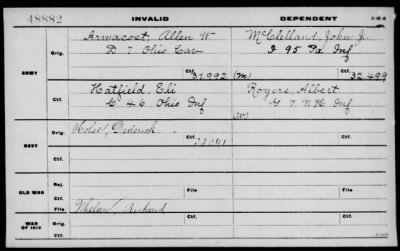 48882
INVALID
DEPENDENT
3-18-6
ARMY
Orig.
Armacost, Allen W
D 7 Ohio Cav
McClelland, John J.
I 95 Pa Inf
Ctf.
37,992
(m)
Ctf.
32,499
Orig.
Hatfield, Eli
C 46 Ohio Inf
Rogers, Albert
G 7 N H Inf
Ctf.
(W)
Ctf.
NAVY
Orig.
Ctf.
Ctf.
Ctf.
OLD WAR
Rej.
Ctf.
File
File
WAR OF 1812
Whelan, Richard